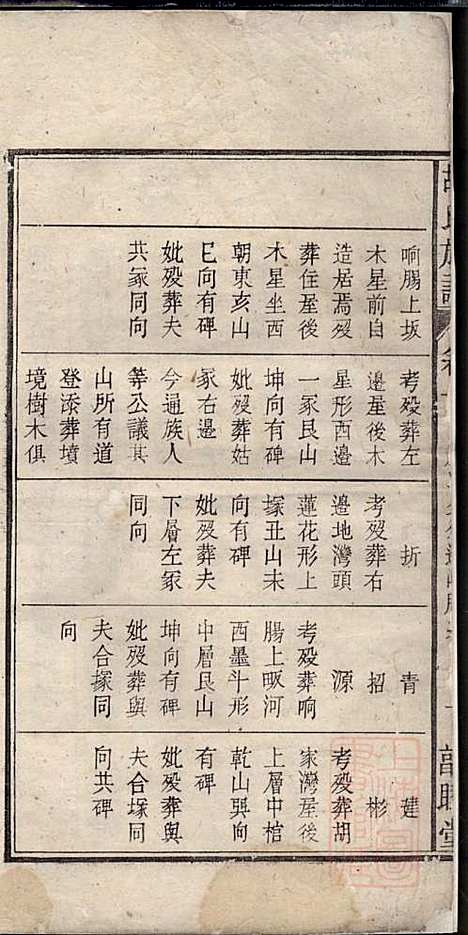 响腸上坂
木星前自
造居焉歿
葬住屋後
木星坐西
朝東亥山
巳向有碑
妣歿葬夫
共冢同向
考歿葬左
邊屋後木
星形西邊
一冢艮山
坤向有碑
妣歿葬姑
冢右邊
今通族人
等公議其
山所有道
登添葬墳
境樹木俱
折
考歿葬右
邊地灣頭
蓮花形上
塚丑山未
向有碑
妣歿葬夫
下層左冢
同向
青
招
源
考歿葬响
腸上畈河
西墨斗形
中層艮山
坤向有碑
妣歿葬與
夫合塚同
向
蓮
彬
考歿葬胡
家灣屋後
上層中棺
乾山巽向
有碑
妣歿葬與
夫合塚同
向共碑
氏族譜